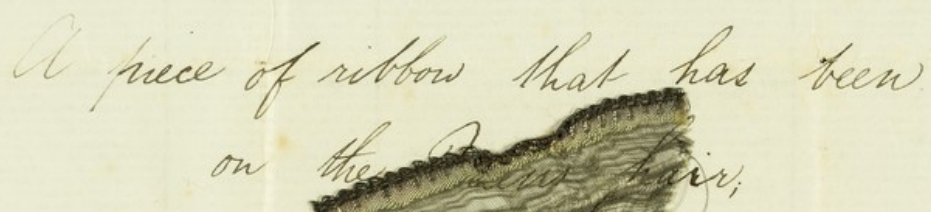 A piece of ribbon that has been
on the Queens hair;